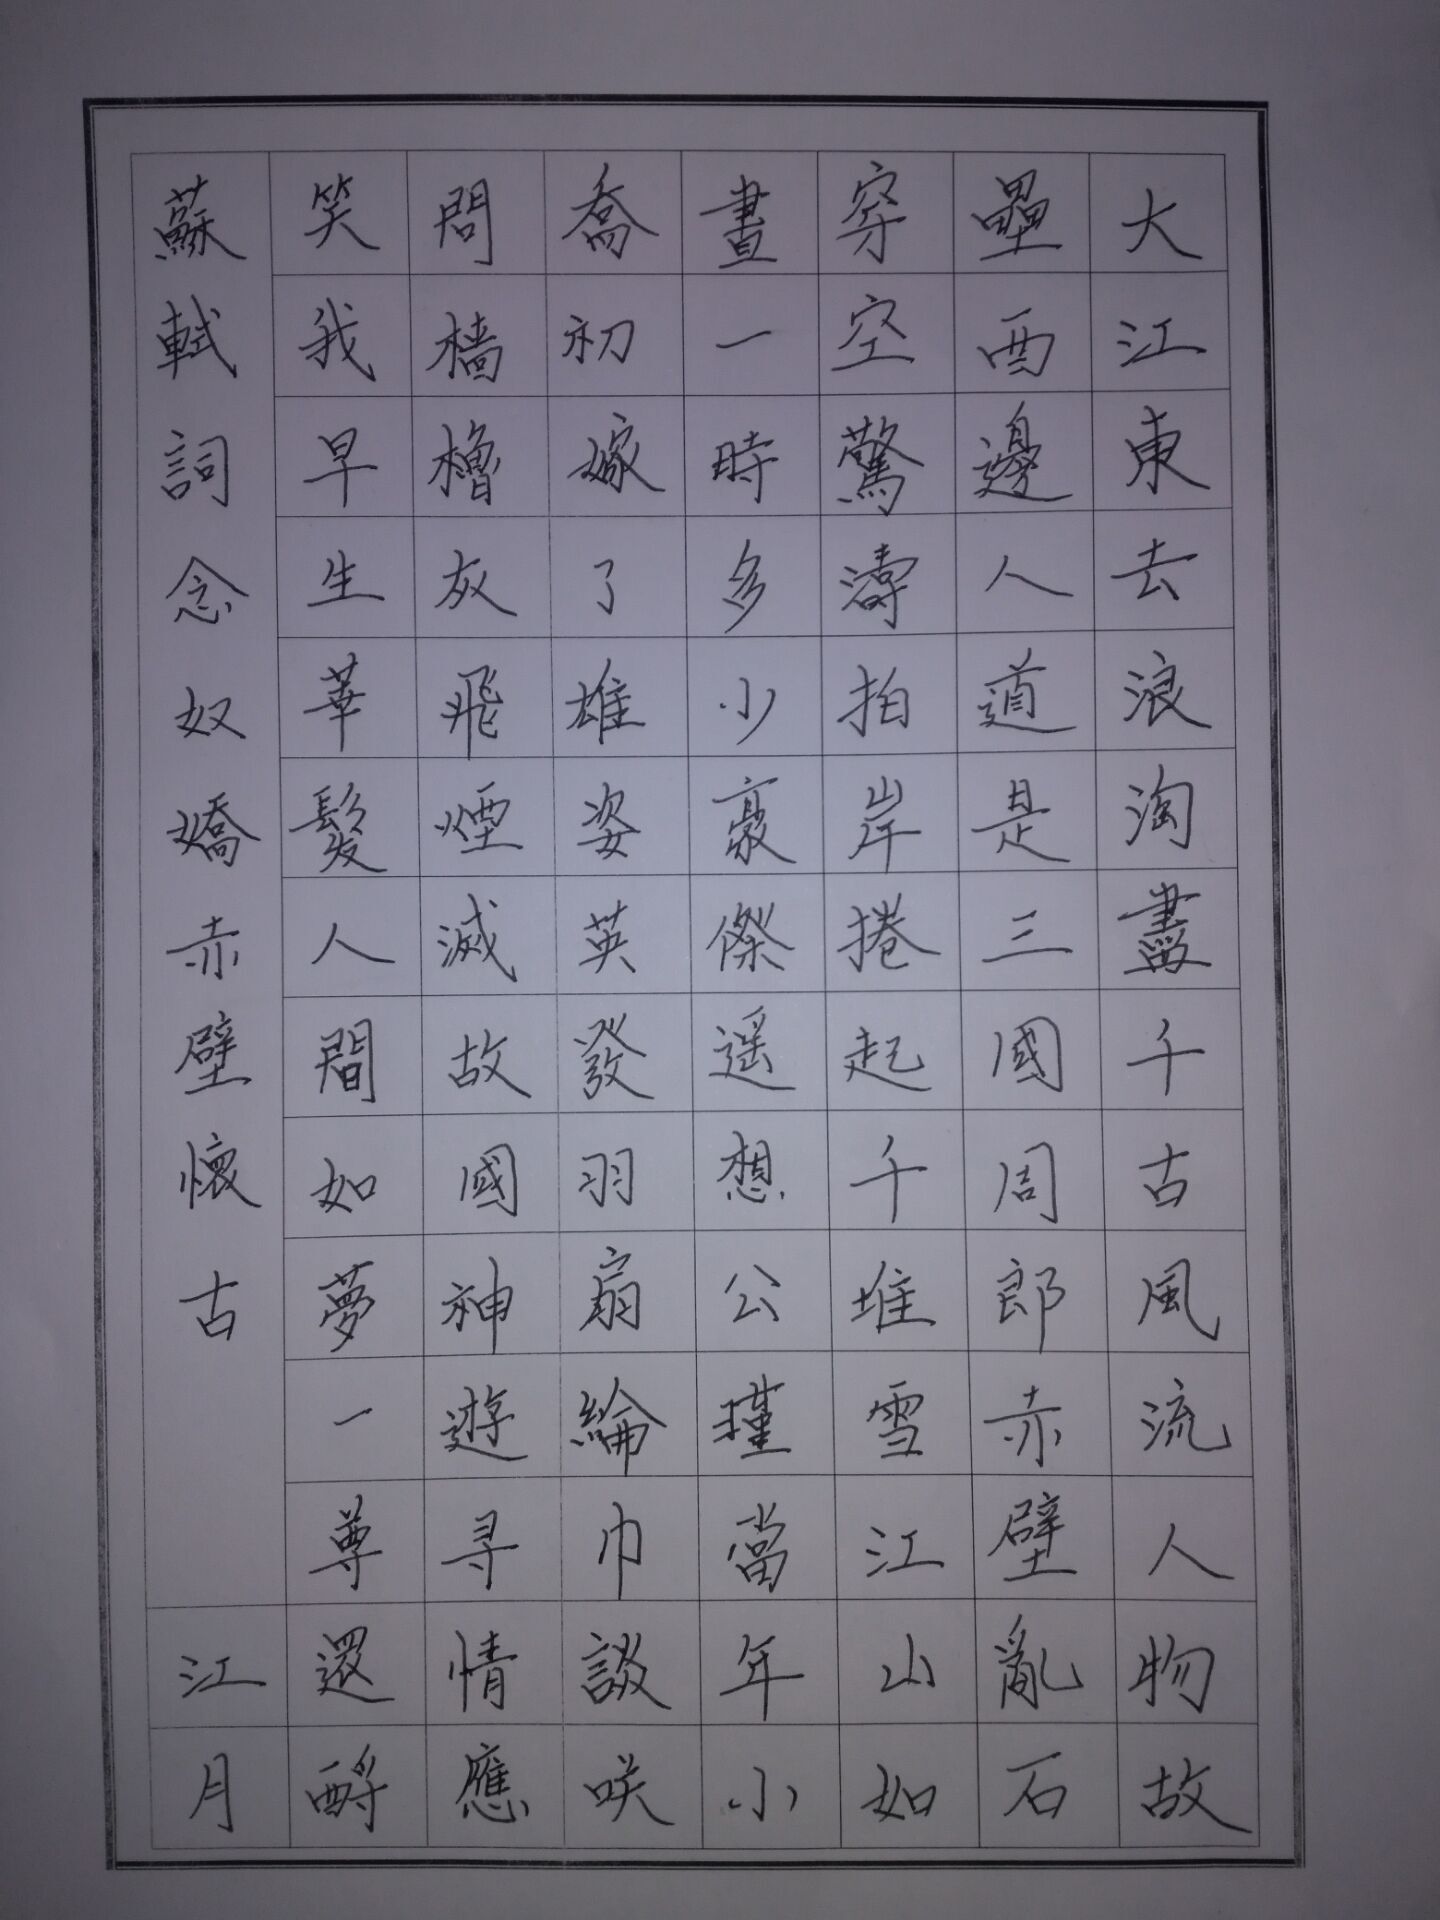 大江東去浪淘盡千古風流人物故
壘西邊人道是三國周郎赤壁亂石
穿空驚濤拍岸捲起千堆雪江山如
畫一時多少豪傑遥想公瑾當年小
喬初嫁了雄姿英發羽扇綸巾談咲
問檣櫓灰飛煙滅故國神遊寻情應
笑我早生華髮人間如夢一尊還酹
江月
蘇軾詞念奴嬌赤壁懷古